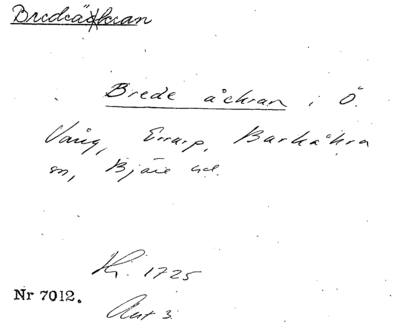 Bredeåkran
Brede åckran i Ö.
Vång, Errarp, Barkåkra
sn, Bjäre hd.
K. 1725
Nr 7012.
Akt 3.